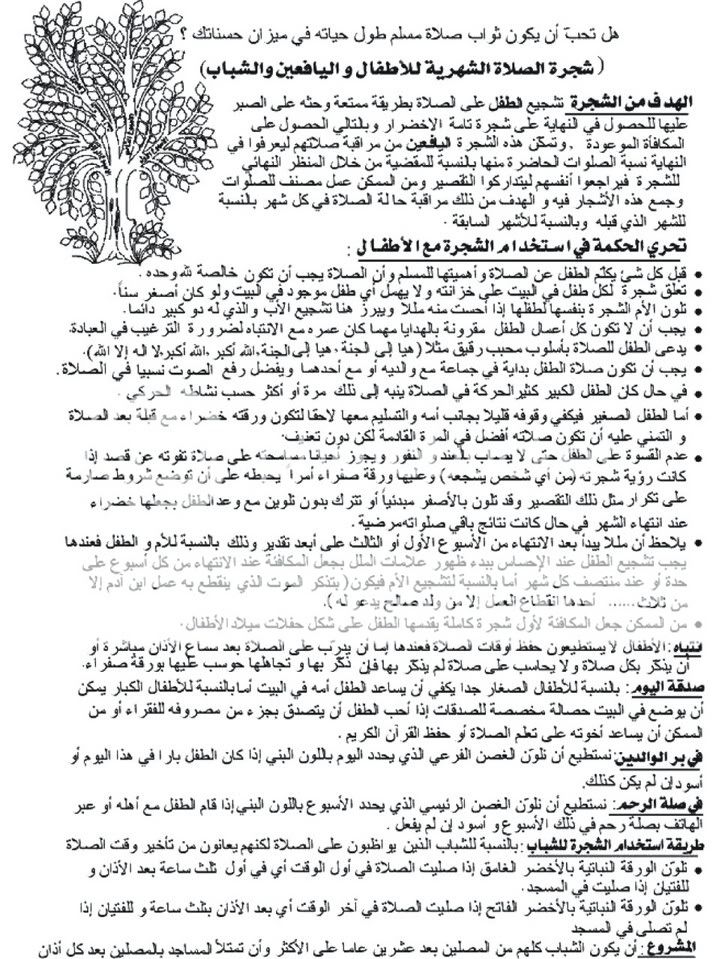 هل تحبّ أن يكون ثواب صلاة مسلم طول حياته في ميزان حسناتك ؟
( شجرة الصلاة الشهرية للأطفال و اليافعين والشباب)
الهدف من الشجرة تشجيع الطفل على الصلاة بطريقة ممتعة وحثه على الصبر
عليها للحصول في النهاية على شجرة تامة الاخضرار وبالتالي الحصول على
المكافأة الموعودة , وتمكن هذه الشجرة اليافعين من مراقبة صلاتهم ليعرفوا في
النهاية نسبة الصلوات الحاضرة منها بالنسبة للمقضية من خلال المنظر النهائي
للشجرة فيراجعوا أنفسهم ليتداركوا التقصير ومن الممكن عمل مصنف للصلوات
وجمع هذه الأشجار فيه و الهدف من ذلك مراقبة حالة الصلاة في كل شهر بالنسبة
للشهر الذي قبله وبالنسبة للأشهر السابقة .
تحري الحكمة في استخدام الشجرة مع الأطفال :
● قبل كل شئ يكلم الطفل عن الصلاة و أهميتها للمسلم وأن الصلاة يجب أن تكون خالصة لله وحده .
● تعلق شجرة لكل طفل في البيت على خزانته ولا يهمل أي طفل موجود في البيت ولو كان أصغر سناً.
● تلون الأم الشجرة بنفسها لطفلها إذا أحست منه مللا ويبرز هنا تشجيع الأب والذي له دو كبير دائما.
● يجب أن لا تكون كل أعمال الطفل مقرونة بالهدايا مهما كان عمره مع الانتباه لضرورة الترغيب في العبادة.
● يدعى الطفل للصلاة بأسلوب محبب رقيق مثلا (هيا إلى الجنة، هيا إلى الجنة,الله أكبر ,الله أكبر,لا اله إلا الله).
● يجب أن تكون صلاة الطفل بداية في جماعة مع والديه أو مع أحدهما ويفضل رفع الصوت نسبيا في الصلاة.
● في حال كان الطفل الكبير كثير الحركة في الصلاة ينبه إلى ذلك مرة أو أكثر حسب نشاطه الحركي .
● أما الطفل الصغير فيكفي وقوفه قليلا بجانب أمه والتسليم معها لاحقا لتكون ورقته خضراء مع قبلة بعد الصلاة
و التمني عليه أن تكون صلاته أفضل في المرة القادمة لكن دون تعنيف.
● عدم القسوة على الطفل حتى لا يصاب بالعند و النفور ويجوز أحيانا مسامحته على صلاة تفوته عن قصد إذا
كانت رؤية شجرته (من أي شخص يشجعه) وعليها ورقة صفراء أمراً يحبطه على أن توضع شروط صارمة
على تكرار مثل ذلك التقصير وقد تلون بالأصفر مبدئياً أو تترك بدون تلوين مع وعد الطفل بجعلها خضراء
عند انتهاء الشهر في حال كانت نتائج باقي صلواته مرضية .
● يلاحظ أن مللا يبدأ بعد الانتهاء من الأسبوع الأول أو الثالث على أبعد تقدير وذلك بالنسبة للأم و الطفل فعندها
يجب تشجيع الطفل عند الإحساس ببدء ظهور علامات الملل بجعل المكافئة عند الانتهاء من كل أسبوع على
حدة أو عند منتصف كل شهر أما بالنسبة لتشجيع الأم فيكون( بتذكر الموت الذي ينقطع به عمل ابن آدم إلا
من ثلاث...... أحدها انقطاع العمل إلا من ولد صالح يدعو له ).
● من الممكن جعل المكافئة لأول شجرة كاملة يقدمها الطفل على شكل حفلات ميلاد الأطفال.
انتباه : الأطفال لا يستطيعون حفظ أوقات الصلاة فعندها إما أن يدرّب على الصلاة بعد سماع الأذان مباشرة أو
أن يذكّر بكل صلاة ولا يحاسب على صلاة لم يذكّر بها فإن ذكّر بها و تجاهلها حوسب عليها بورقة صفراء.
صدقة اليوم : بالنسبة للأطفال الصغار جدا يكفي أن يساعد الطفل أمه في البيت أما بالنسبة للأطفال الكبار يمكن
أن يوضع في البيت حصالة مخصصة للصدقات إذا أحب الطفل أن يتصدق بجزء من مصروفه للفقراء أو من
الممكن أن يساعد أخوته على تعلم الصلاة أو حفظ القرآن الكريم .
في بر الوالدين: نستطيع أن نلوّن الغصن الفرعي الذي يحدد اليوم باللون البني إذا كان الطفل بارا في هذا اليوم أو
أسود إن لم يكن كذلك.
في صلة الرحم: نستطيع أن نلوّن الغصن الرئيسي الذي يحدد الأسبوع باللون البني إذا قام الطفل مع أهله أو عبر
الهاتف بصلة رحم في ذلك الأسبوع و أسود إن لم يفعل .
طريقة استخدام الشجرة للشباب :بالنسبة للشباب الذين يواظبون على الصلاة لكنهم يعانون من تأخير وقت الصلاة
● تلوّن الورقة النباتية بالأخضر الغامق إذا صليت الصلاة في أول الوقت أي في أول ثلث ساعة بعد الأذان و
للفتيان إذا صليت في المسجد.
● تلوّن الورقة النباتية بالأخضر الفاتح إذا صليت الصلاة في آخر الوقت أي بعد الأذان بثلث ساعة و للفتيان إذا
لم تصلى في المسجد
المشروع : أن يكون الشباب كلهم من المصلين بعد عشرين عاما على الأكثر وأن تمتلأ المساجد بالمصلين بعد كل أذان